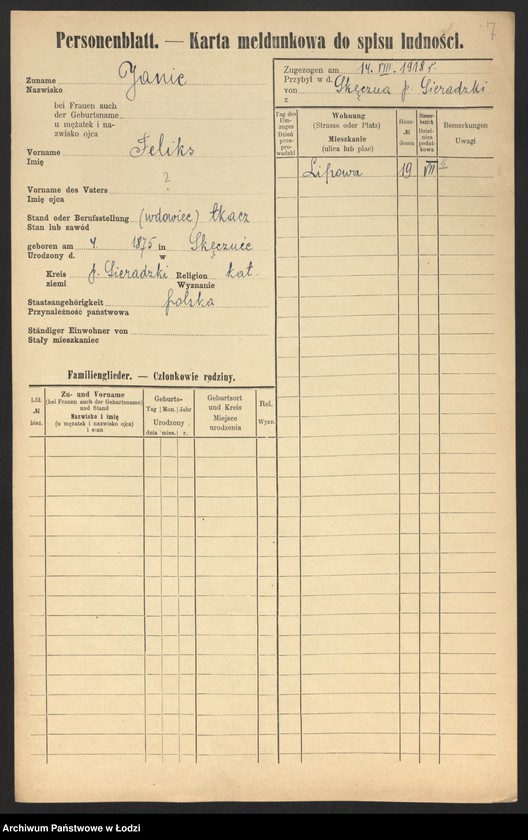 7
Personenblatt. — Karta meldunkowa do spisu ludności.
Zuname
Nazwisko
Janic
bei Frauen auch
der Geburtsname
u mężatek i na-
zwisko ojca
Vorname
Imię
Feliks
Vorname des Vaters
Imię ojca
?
Stand oder Berufsstellung (wdowiec) tkacz
Stan lub zawód
geboren am 4. 1875 in
Urodzony d. w
Kreis p. Sieradzki Religion kat.
ziemi Wyznanie
Staatsangehörigkeit polska
Przynależność państwowa
Ständiger Einwohner von
Stały mieszkaniec
Zugezogen am 14. VIII. 1918 r.
Przybył w d.
von p. Sieradzki
z
Tag des
Um-
zuges
Dzień
prze-
prowadzki
Wohnung
(Strasse oder Platz)
Mieszkanie
(ulica lub plac)
Haus-
№
domu
Steuer-
bezirk
Dziel-
nica
podat-
kowa
Bemerkungen
Uwagi
Lipowa 19 VII
Familienglieder. — Członkowie rodziny.
Lfd.
№
bież.
Zu- und Vorname
(bei Frauen auch der Geburtsname)
und Stand
Nazwisko i imię
(u mężatek i nazwisko ojca)
i stan
Geburts-
Tag | Mon. | Jahr
Urodzony
dnia | mies. | r.
Geburtsort
und Kreis
Miejsce
urodzenia
Rel.
Wyzn.
Archiwum Państwowe w Łodzi